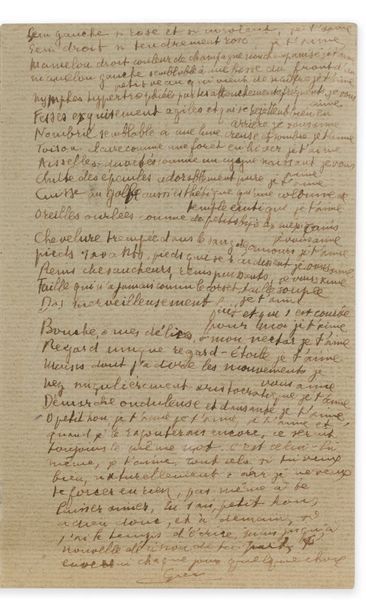 Sein gauche si rose et si insolent, je t'aime
Sein droit si tendrement rosé, je t'aime
Mamelon droit couleur de champagne non champagnisé, je t'aime
mamelon gauche semblable à une bosse du front d'un
petit veau qui vient de naître, je t'aime
nymphes hypertrophiées par tes attouchements fréquents, je vous
aime
Fesses exquisement agiles et qui se rejettent bien en
arrière je vous aime
Nombril semblable à une lune creuse et sombre, je t'aime
Toison claire comme une forêt en hiver, je t'aime
Aisselles duvetées comme un cygne naissant, je vous
aime
Chute des épaules adorablement pure, je t'aime
Cuisse au galbe aussi esthétique qu'une colonne de
temple antique je t'aime
Oreilles ourlées comme de petits bijoux mexicains
je vous aime
Chevelure trempée dans le sang des amours je t'aime
pieds savants, pieds qui se raidissent je vous aime
Reins chevaucheurs, reins puissants, je vous aime
Taille qui n'a jamais connu le corset, taille souple
je t'aime
Dos merveilleusement
et qui s'est courbé
pour moi je t'aime
Bouche, ô mes délices, ô mon nectar je t'aime
Regard unique regard-étoile je t'aime
Mains dont j'adore les mouvements je
vous aime
nez singulièrement aristocratique, je t'aime
Démarche onduleuse et dansante je t'aime
O petit Lou, je t'aime je t'aime, je t'aime et
quand je le rajouterais encore, ce serait
toujours le même mot, c'est celui-là
même, je t'aime, tout cela si tu veux
bien, naturellement, car je ne veux
te forcer en rien, pas même à te
laisser aimer, Lou, mon petit Lou,
adieu donc, et à demain, si
j'ai le temps d'écrire, mais jusqu'à
nouvelle décision de toi
chaque jour quelque chose
Gui